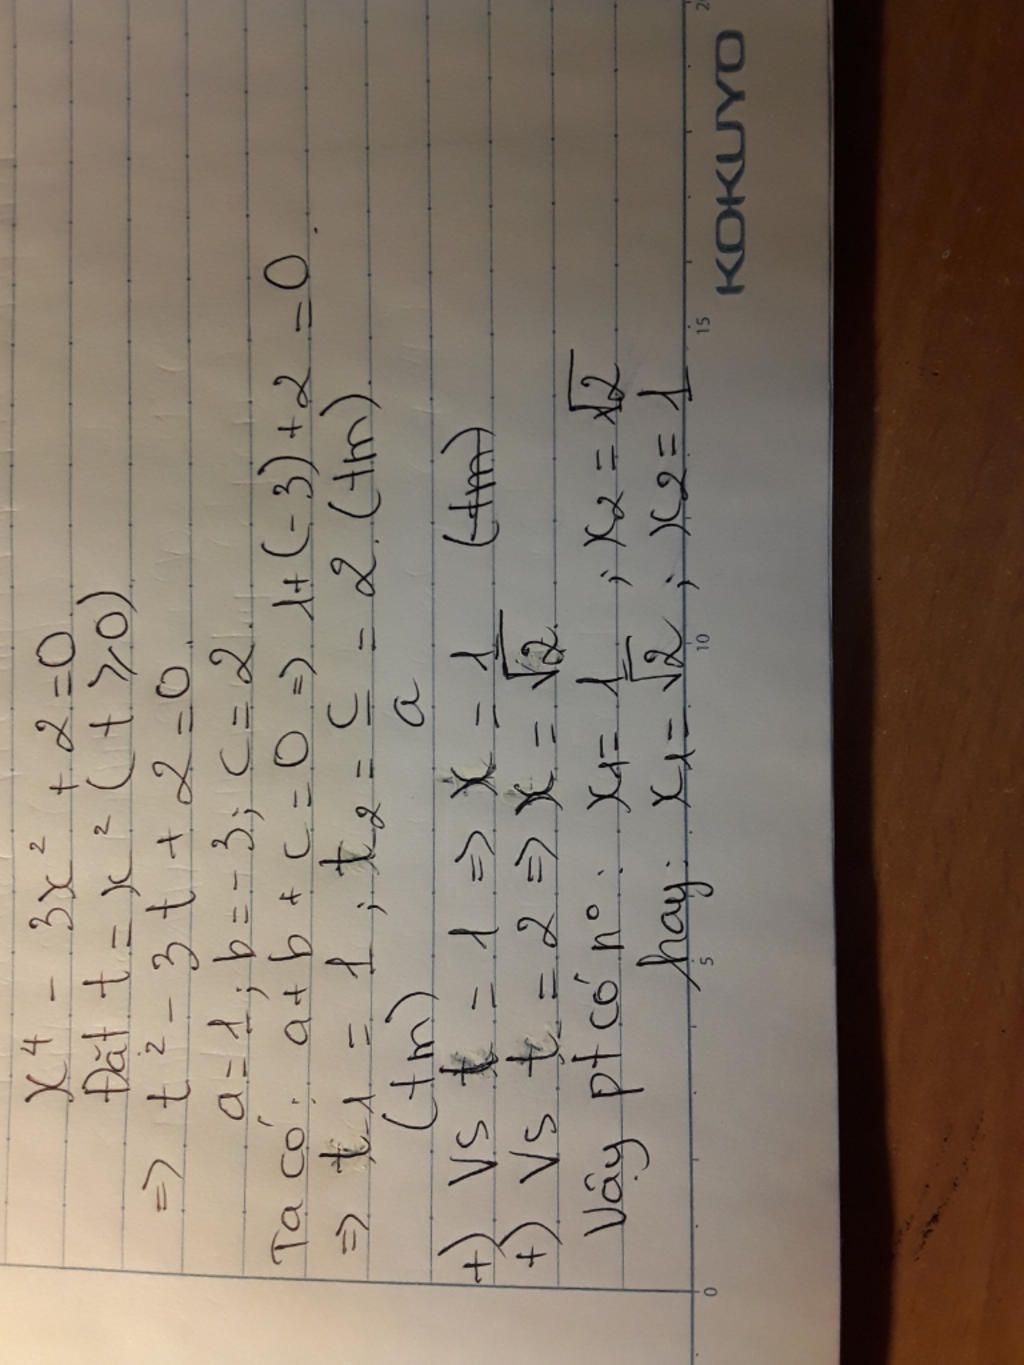 x⁴ - 3x² + 2 = 0
Đặt t = x² (t ⩾ 0)
=> t² - 3t + 2 = 0
a = 1; b = -3; c = 2
Ta có: a + b + c = 0 => 1 + (-3) + 2 = 0
=> t₁ = 1; t₂ = c/a = 2 (tm)
(tm)
+) Vs t = 1 => x = 1 (tm)
+) Vs t = 2 => x = √2
Vậy pt có n°: x₁ = 1; x₂ = √2
hay: x₁ = √2; x₂ = 1
0 5 10 15 20
KOKUYO